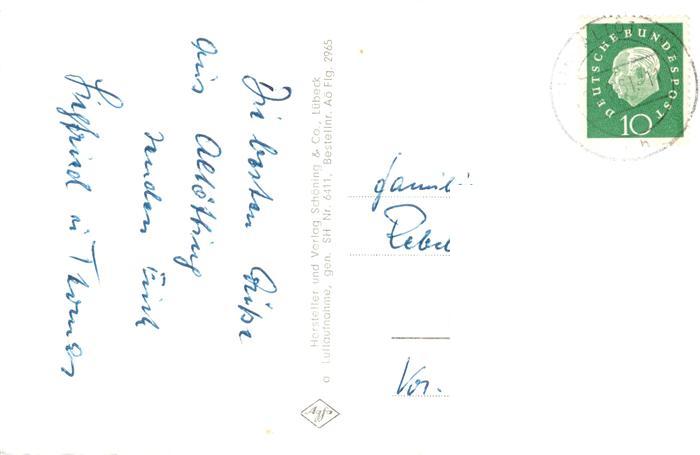 Die besten Grüße
aus Altötting
senden Euch
Siegfried u. Thomas
Hersteller und Verlag Schöning & Co., Lübeck
a Luftaufnahme, gen. SH Nr. 6411, Bestellnr. Aö Flg. 2965
DEUTSCHE BUNDESPOST
10
Famil
Rebe
Vor.